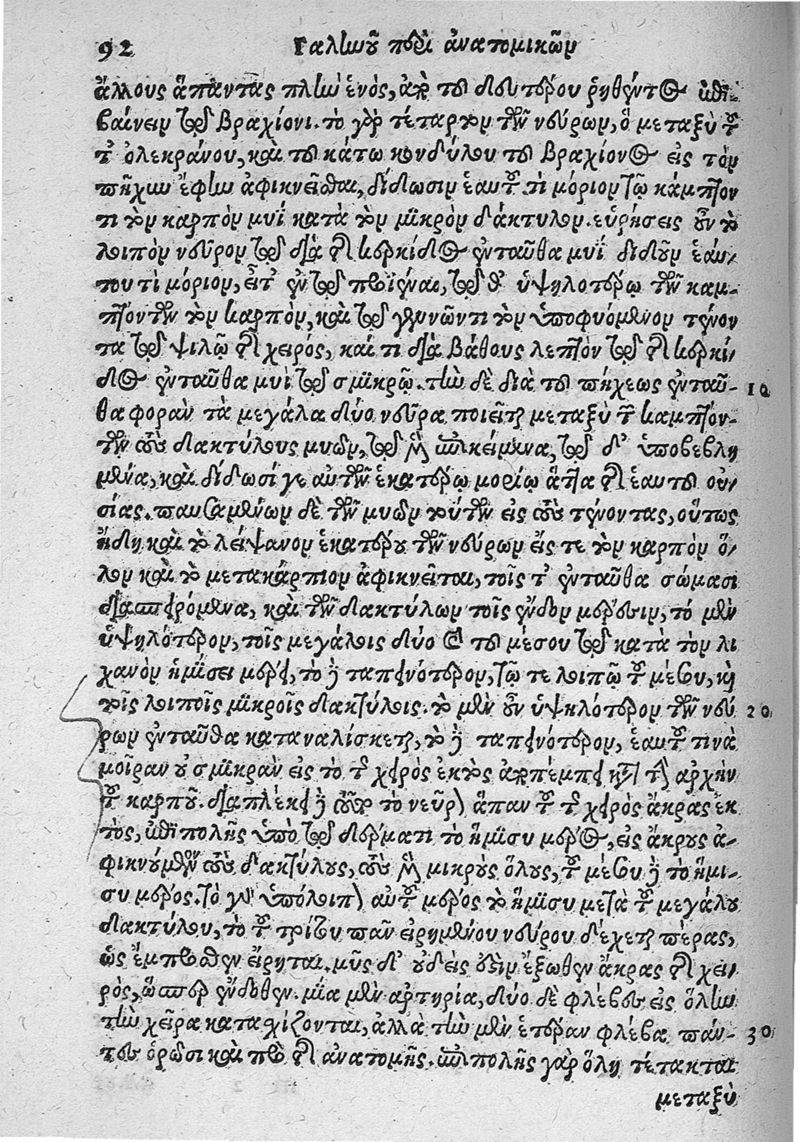 92 Γαληνοῦ περὶ ἀνατομικῶν
ἄλλους ἅπαντας πλὴν ἑνὸς, ἀπὸ τοῦ δευτέρου ῥηθέντος ἐπι-
βαίνειν τῷ βραχίονι. τὸ γὰρ τέταρτον τῶν νεύρων, ὃ μεταξὺ τοῦ
τ’ ὀλεκράνου, καὶ τοῦ κάτω κονδύλου τοῦ βραχίονος εἰς τὸν
πῆχυν ἔφην ἀφικνεῖσθαι, δίδωσιν ἑαυτοῦ τι μόριον τῷ κάμπτον
τι τὸν καρπὸν μυῒ κατὰ τὸν μικρὸν δάκτυλον. εὑρήσεις οὖν τὸ
λοιπὸν νεῦρον τῷ διὰ τῆς κερκίδος ἐνταῦθα μυῒ διδοῦν ἑαυ-
του τὶ μόριον, εἶτ’ ἐν τῷ προϊέναι, τῷ θ’ ὑψηλοτέρῳ τῶν καμ-
πτόντων τὸν καρπὸν, καὶ τῷ γεννῶντι τὸν ὑποφυόμενον τένον
τα τῷ ψιλῷ τῆς χειρός, καί τι διὰ βάθους λεπτὸν τῷ τῆς κερκί-
δος ἐνταῦθα μυῒ τῷ σμικρῷ. τὴν δὲ διὰ τοῦ πήχεως ἐνταῦ- 10
θα φορὰν τὰ μεγάλα δύο νεῦρα ποιεῖται μεταξὺ τῶν καμπτόν-
των τοὺς δακτύλους μυῶν, τῷ μὲν ἐπικείμενα, τῷ δ’ ὑποβεβλη
μένα, καὶ δίδωσί γε αὐτῶν ἑκατέρῳ μορίῳ ἄττα τῆς ἑαυτοῦ οὐ-
σίας. παυσαμένων δὲ τῶν μυῶν τούτων εἰς τοὺς τένοντας, οὕτως
ἤδη καὶ τὸ λείψανον ἑκατέρου τῶν νεύρων εἴς τε τὸν καρπὸν ὅ-
λον καὶ τὸ μετακάρπιον ἀφικνεῖται, τοῖς τ’ ἐνταῦθα σώμασι
διασπειρόμενα, καὶ τῶν δακτύλων τοῖς ἔνδον μέρεσιν, τὸ μὲν
ὑψηλότερον, τοῖς μεγάλοις δύο καὶ τοῦ μέσου τῷ κατὰ τὸν λι
χανὸν ἡμίσει μέρει, τὸ δὲ ταπεινότερον, τῷ τε λοιπῷ τοῦ μέσου, καὶ
τοῖς λοιποῖς μικροῖς δακτύλοις. τὸ μὲν οὖν ὑψηλότερον τῶν νεύ 20
ρων ἐνταῦθα καταναλίσκεται, τὸ δὲ ταπεινότερον, ἑαυτοῦ τινὰ
μοῖραν οὐ σμικρὰν εἰς τὸ τῆς χειρὸς ἐκτὸς ἀποπέμπει κατὰ τὴν ἀρχὴν
τοῦ καρποῦ. διαπλέκει δὲ τοῦτο τὸ νεῦρον ἅπαν τοῦ τῆς χειρὸς ἄκρας ἐκ
τὸς, ἐπιπολῆς ὑπὸ τῷ δέρματι τὸ ἥμισυ μέρος, εἰς ἄκρους ἀ-
φικνούμενον τοὺς δακτύλους, τοὺς μὲν μικροὺς ὅλους, τοῦ μέσου δὲ τὸ ἥμι-
συ μέρος. τὸ γὰρ ὑπόλοιπον αὐτοῦ μέρος τὸ ἥμισυ μετὰ τοῦ μεγάλου
δακτύλου, τὸ τοῦ τρίτου πᾶν εἰρημένου νεύρου δέχεται πέρας,
ὡς ἔμπροσθεν εἴρηται. μῦς δ’ οὐδείς ἐστιν ἔξωθεν ἄκρας τῆς χει-
ρὸς, ὥσπερ ἔνδοθεν. μία μὲν ἀρτηρία, δύο δὲ φλέβες εἰς ὅλην
τὴν χεῖρα κατασχίζονται, ἀλλὰ τὴν μὲν ἑτέραν φλέβα πάν- 30
τες ὁρῶσι καὶ πρὸ τῆς ἀνατομῆς. ἐπιπολῆς γὰρ ὅλη τέτακται
μεταξὺ